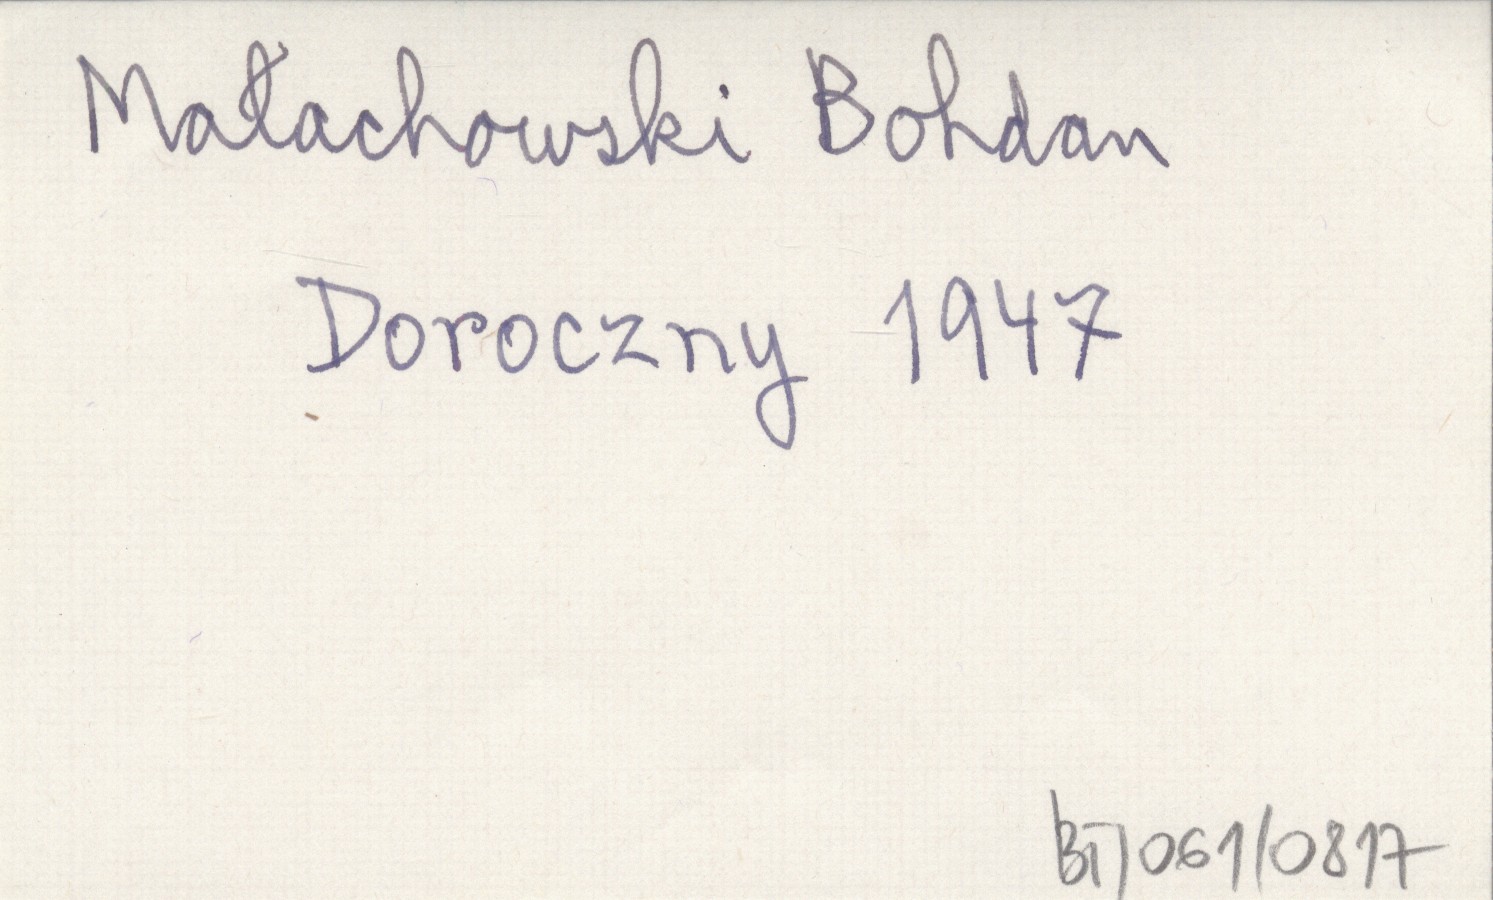 Małachowski Bohdan
Doroczny 1947
BT/061/0817